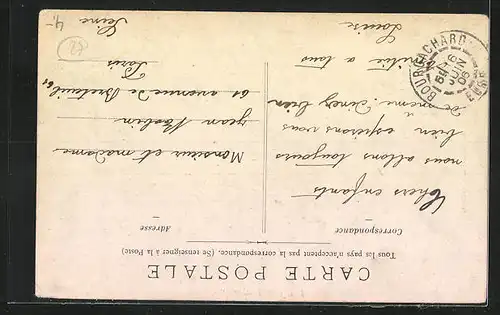 CARTE POSTALE
Tous les pays n'acceptent pas la correspondance. (Se renseigner à la Poste)
Correspondance
Adresse
Chers enfants
nous allons toujours
bien espérons vous
de meme. dinez bien
a tous
Louise
Monsieur et madame
jean
61 avenue de Breteuil
Paris
Seine
BOURGACHARD
EURE
16
JUIN
06
62
4,-